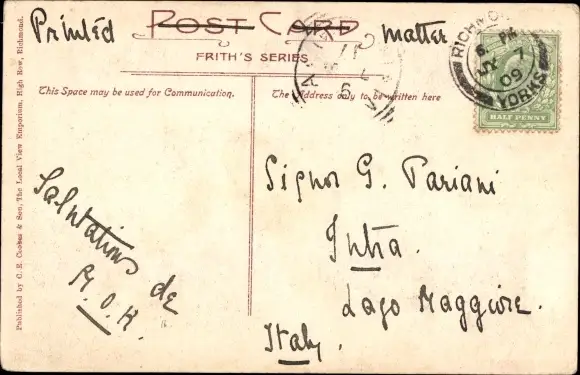 Printed POST CARD matter
FRITH'S SERIES
This Space may be used for Communication.
The Address only to be written here
RICHMOND
YORKS
09
HALF PENNY
Signor G. Pariani
Intra.
Lago Maggiore.
Italy.
Salutations de
Published by C. E. Cookes & Son, The Local View Emporium, High Row, Richmond.